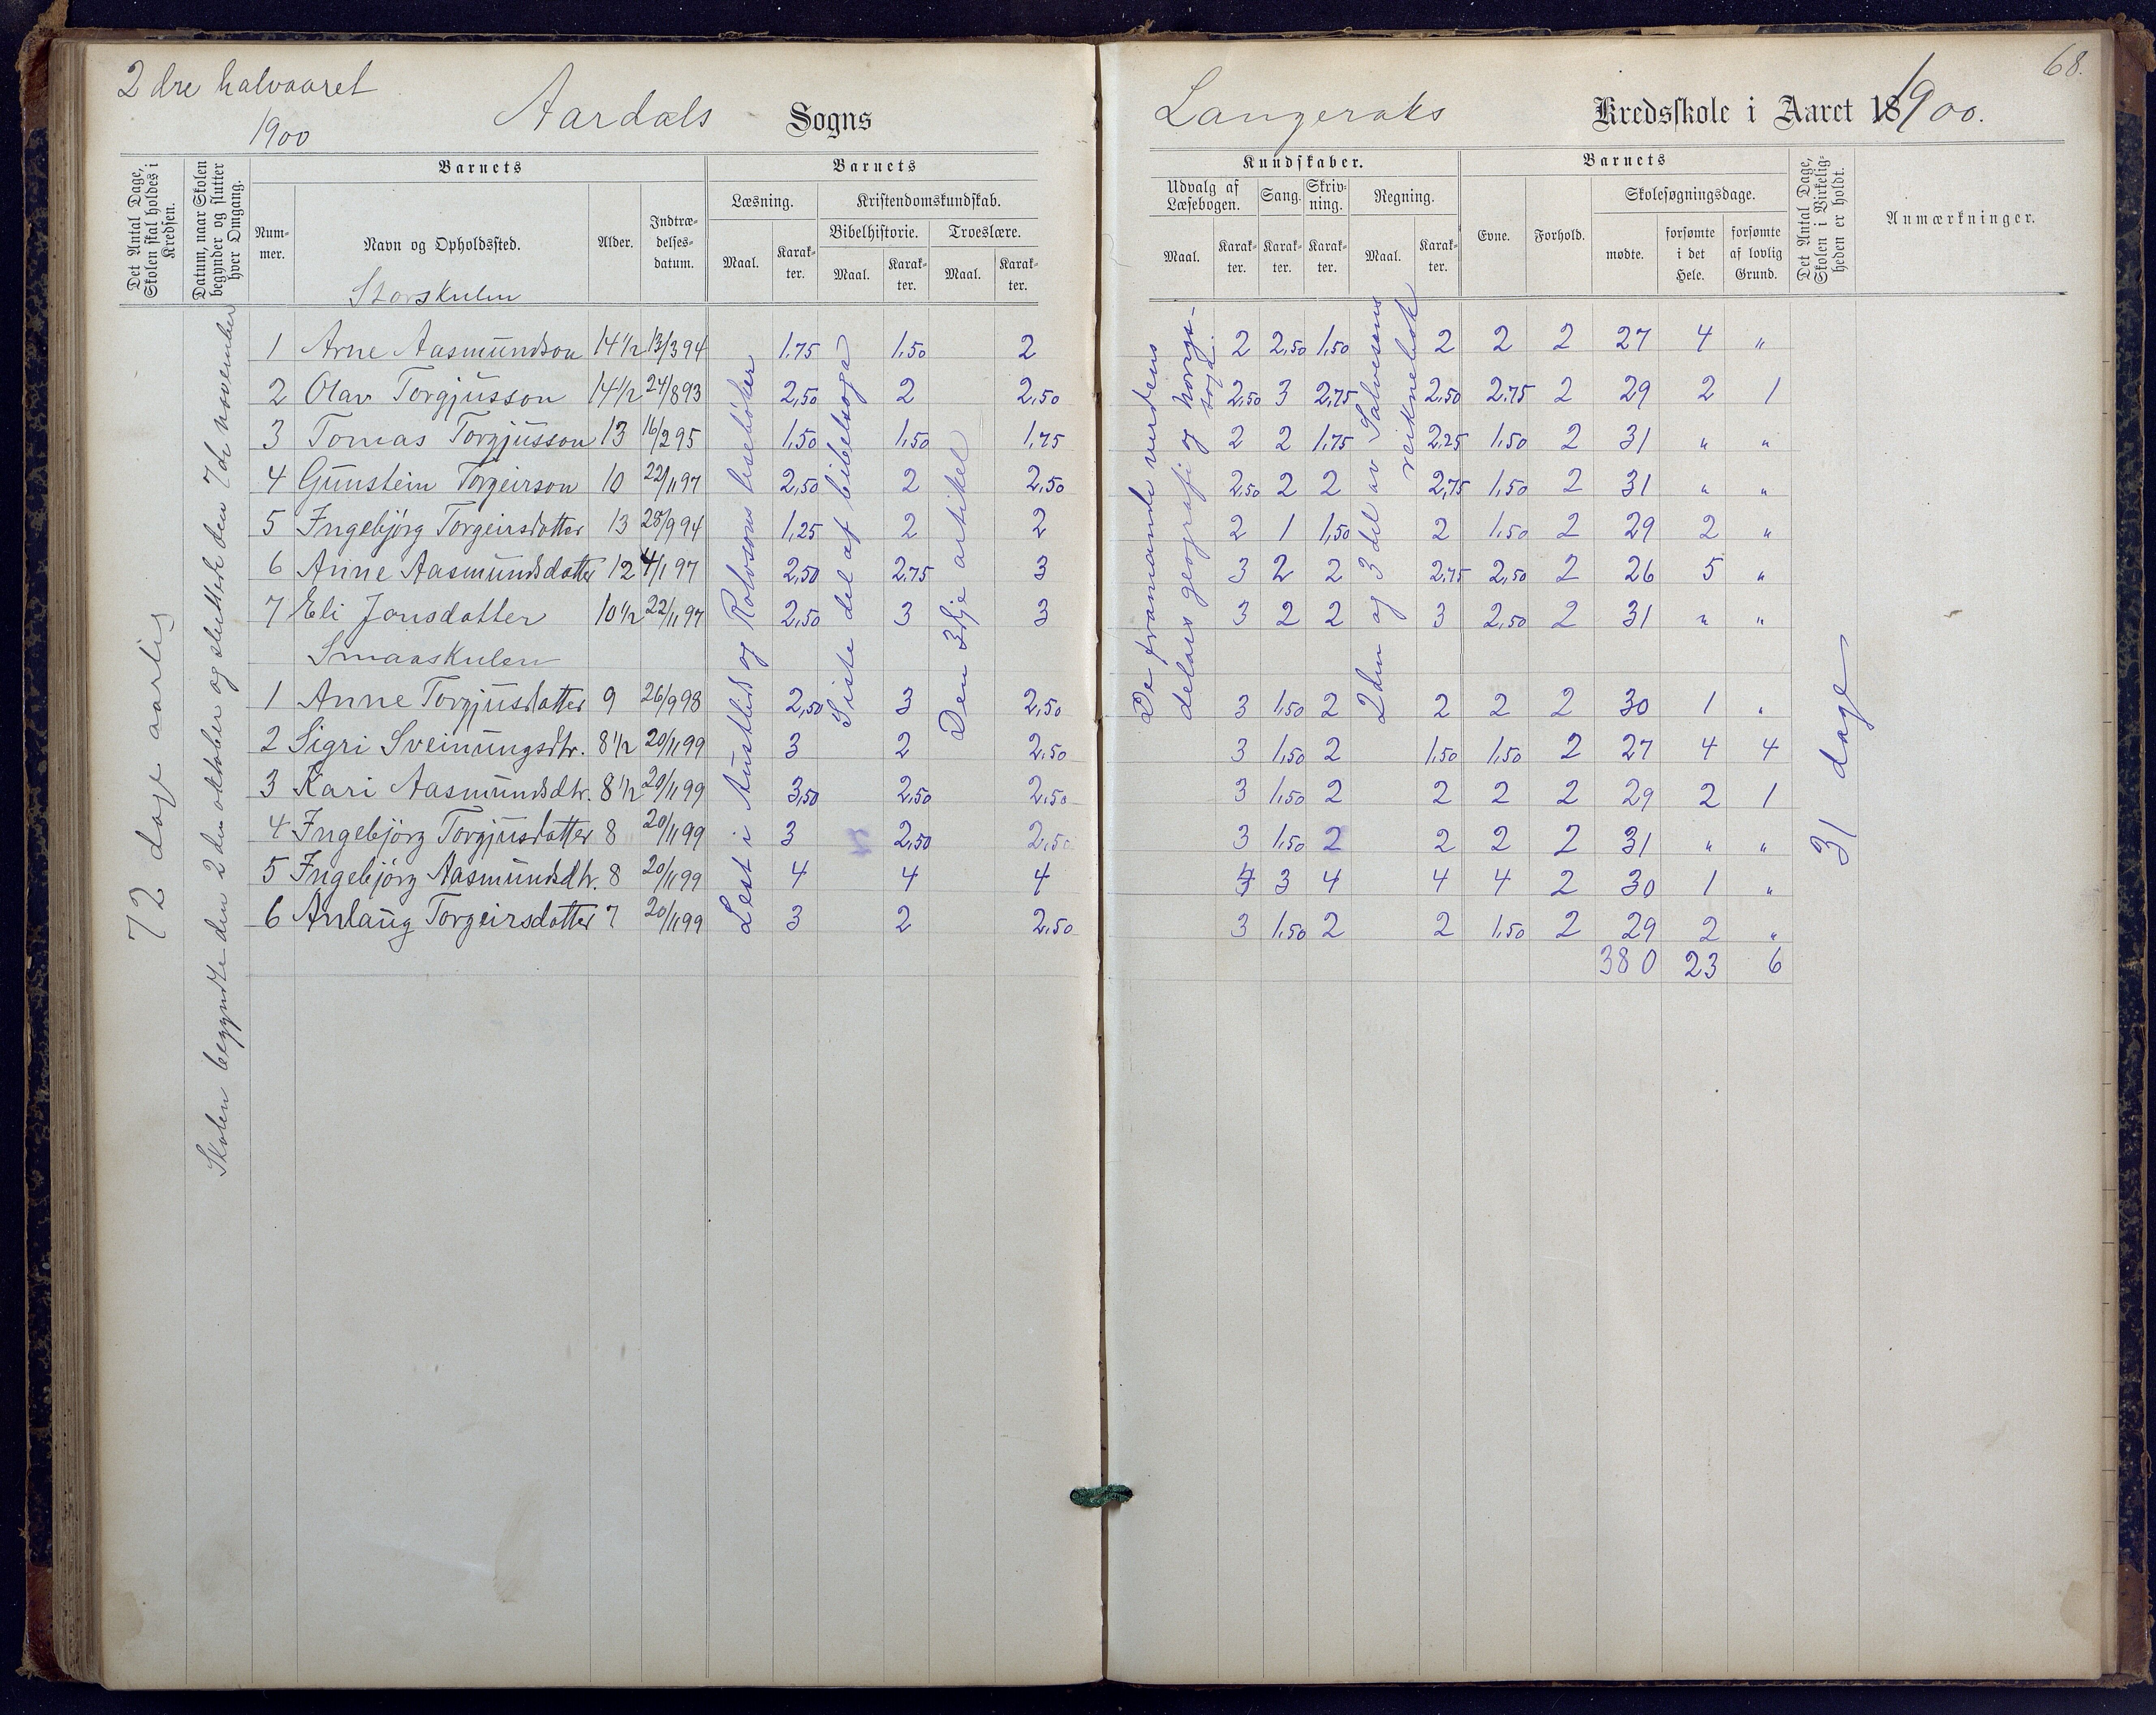 2dre halvaaret
1900
Aardals Sogns
Det Antal Dage, Skolen skal holdes i Kredsen.
Datum, naar Skolen begynder og slutter hver Omgang.
Barnets
Barnets
Num-mer.
Navn og Opholdssted.
Alder.
Indtræ-delses-datum.
Læsning.
Kristendomskundskab.
Bibelhistorie.
Troeslære.
Maal.
Karak-ter.
Maal.
Karak-ter.
Maal.
Karak-ter.
Storskulen
1 Arne Aasmundson 14½ 13/3 94 1,75 1,50 2
2 Olav Torgjusson 14½ 24/8 93 2,50 2 2,50
3 Tomas Torgjusson 13 16/2 95 1,50 1,50 1,75
4 Gunstein Torgeirson 10 22/11 97 2,50 2 2,50
5 Ingebjörg Torgeirsdatter 13 25/9 94 1,25 2 2
6 Anne Aasmundsdatter 12 4/1 97 2,50 2,75 3
7 Eli Jonsdatter 10½ 22/11 97 2,50 3 3
Smaaskulen
1 Anne Torgjusdatter 9 26/9 98 2,50 3 2,50
2 Sigri Sveinungsdtr. 8½ 20/11 99 3 2 2,50
3 Kari Aasmundsdtr. 8½ 20/11 99 3,50 2,50 2,50
4 Ingebjörg Torgjusdatter 8 20/11 99 3 2,50 2,50
5 Ingebjörg Aasmundsdtr. 8 20/11 99 4 4 4
6 Anlaug Torgeirsdatter 7 20/11 99 3 2 2,50
72 dage aarlig
Skolen begyndte den 2den oktober og sluttede den 7de november
Lest i Austlid og Rolvsons lesebøker
Siste del af bibelsoga
Den 3dje artikel
68.
Langeraks Kredsskole i Aaret 1900.
Kundskaber.
Barnets
Udvalg af Læsebogen.
Sang.
Skriv-ning.
Regning.
Evne.
Forhold.
Skolesøgningsdage.
Maal.
Karak-ter.
Karak-ter.
Karak-ter.
Maal.
Karak-ter.
mødte.
forsømte i det Hele.
forsømte af lovlig Grund.
Det Antal Dage, Skolen i Virkelig-heden er holdt.
Anmærkninger.
2 2,50 1,50 2 2 2 27 4 "
2,50 3 2,75 2,50 2,75 2 29 2 1
2 2 1,75 2,25 1,50 2 31 " "
2,50 2 2 2,75 1,50 2 31 " "
2 1 1,50 2 1,50 2 29 2 "
3 2 2 2,75 2,50 2 26 5 "
3 2 2 3 2,50 2 31 " "
3 1,50 2 2 2 2 30 1 "
3 1,50 2 1,50 1,50 2 27 4 4
3 1,50 2 2 2 2 29 2 1
3 1,50 2 2 2 2 31 " "
4 3 4 4 4 2 30 1 "
3 1,50 2 2 1,50 2 29 2 "
380 23 6
De framande verdens
delars geografi og norgs-
soga.
2den og 3 del av Salvesens
reiknebok
31 dage